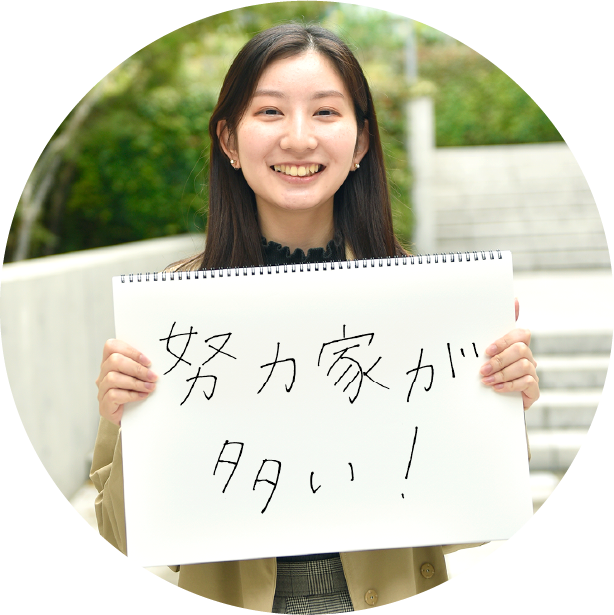 努力家が
多い!